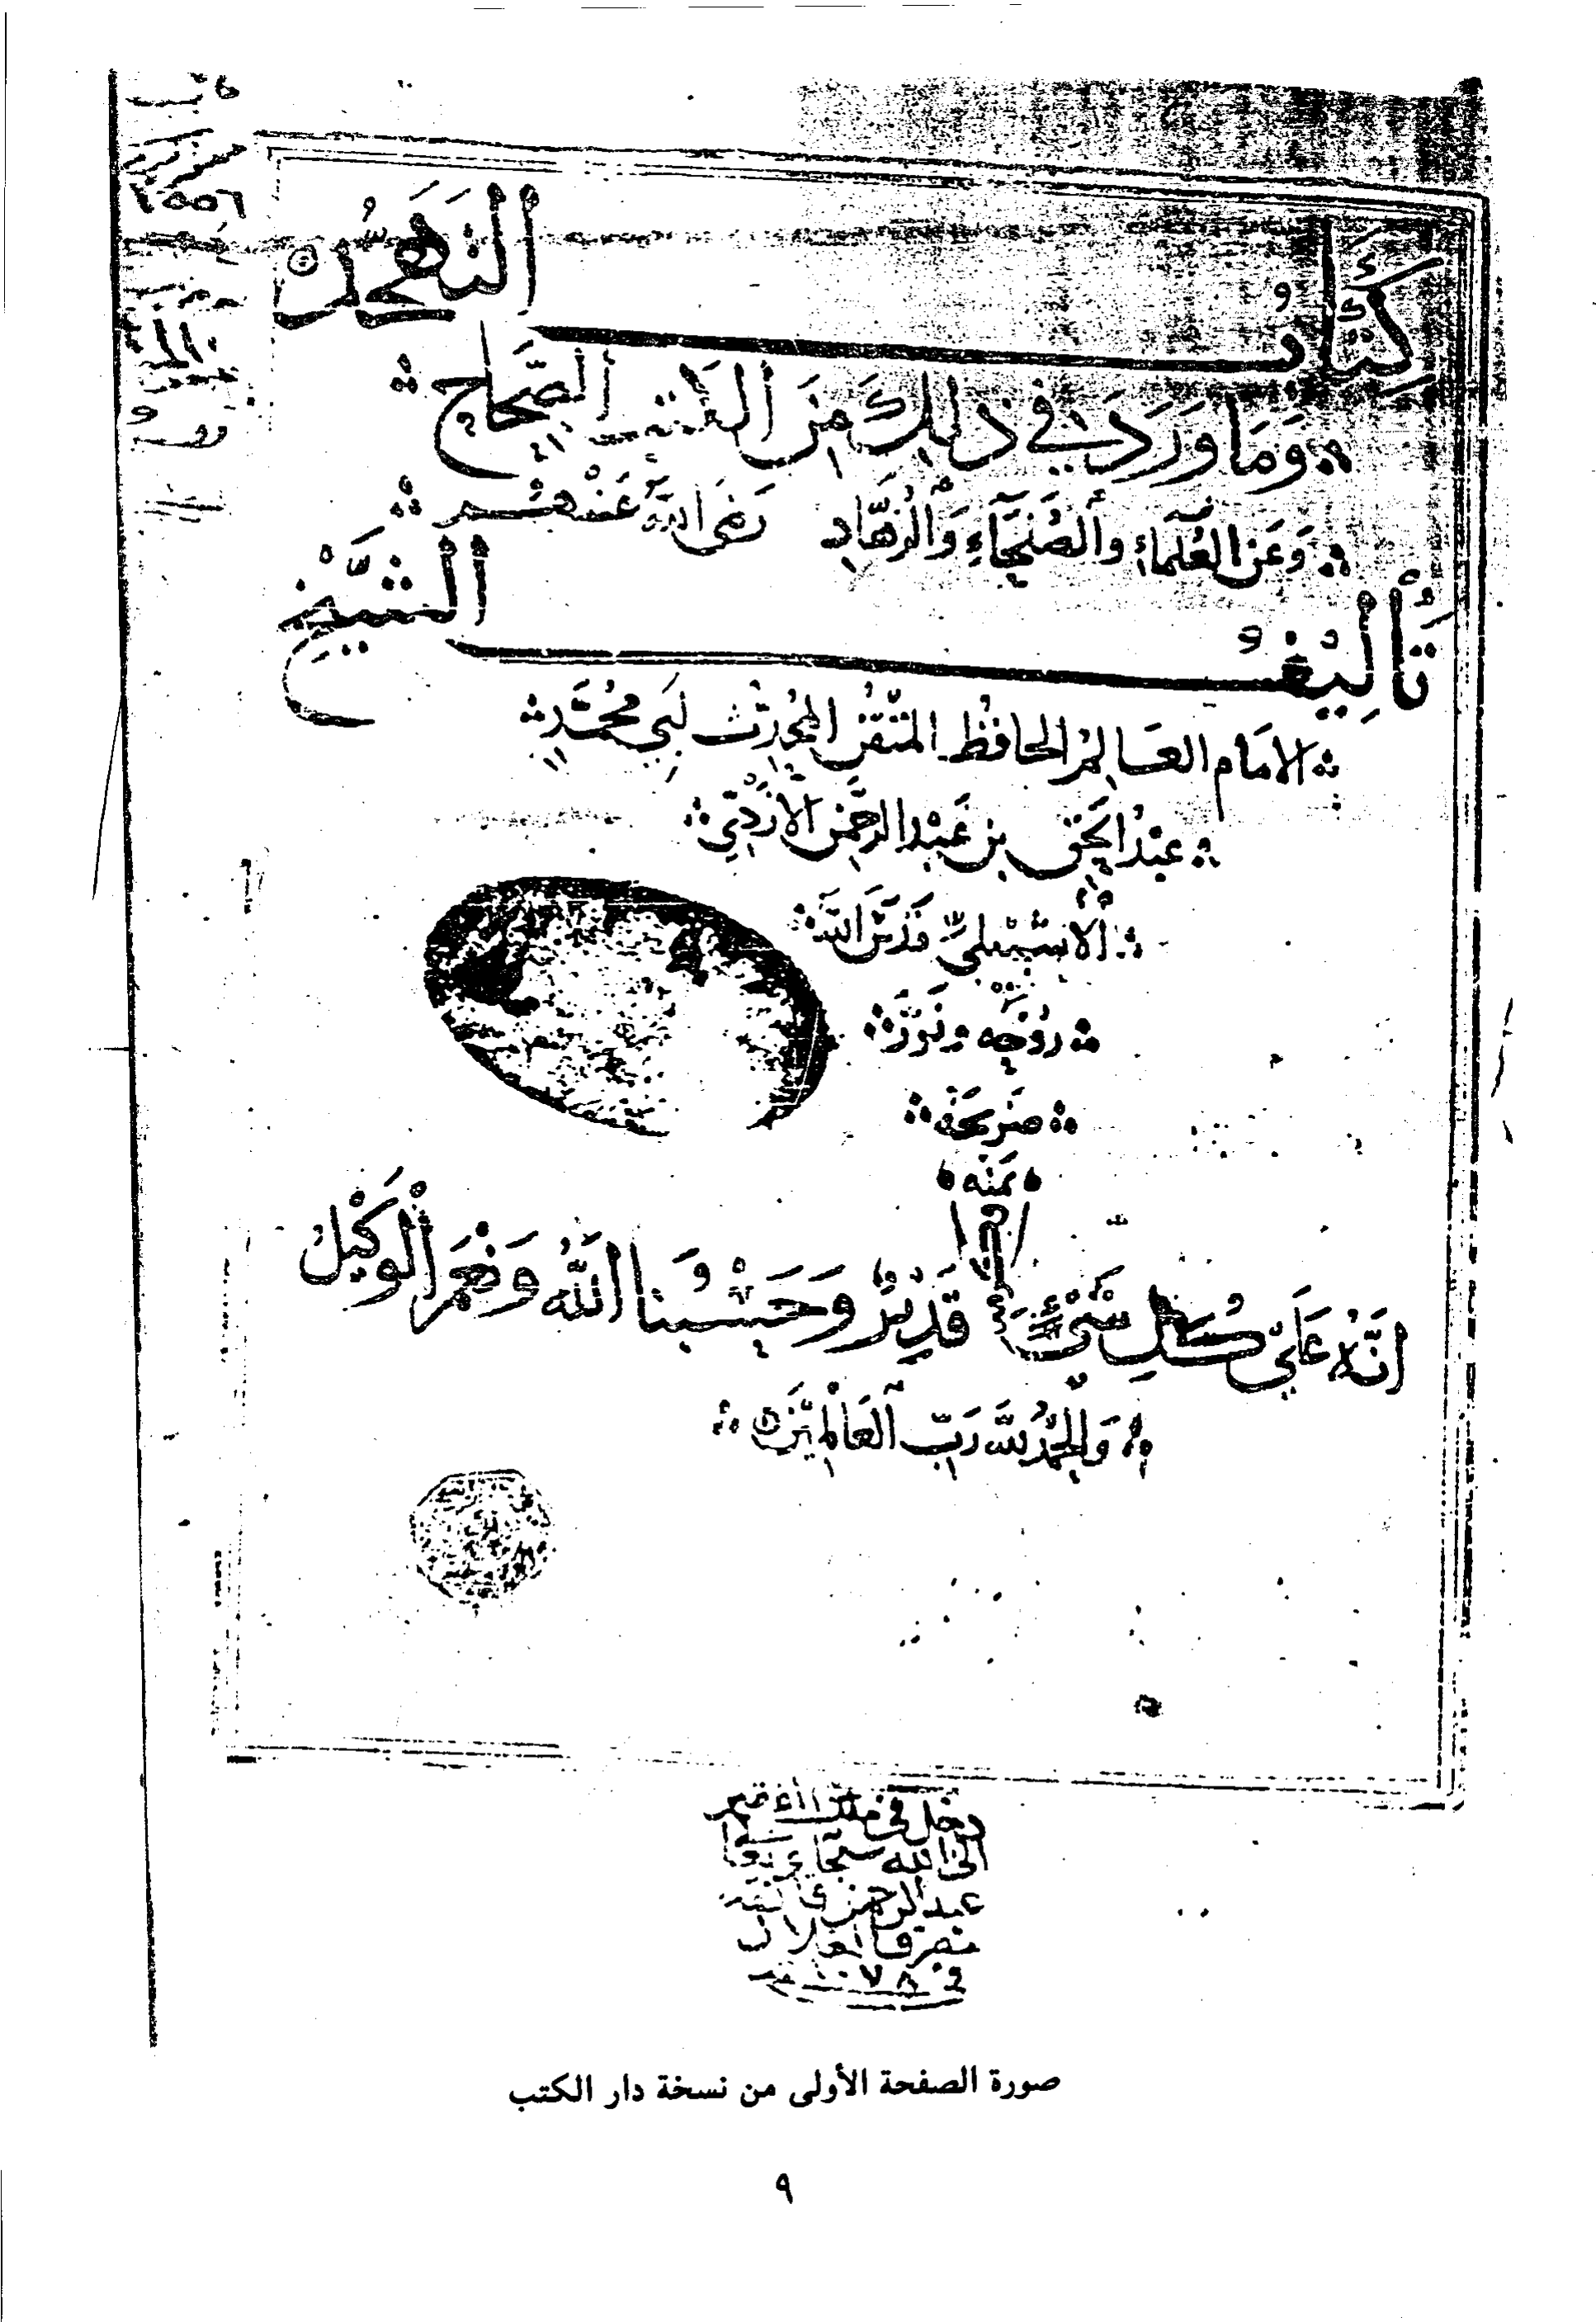 كِتَابُ التَّهَجُّدِ
وَمَا وَرَدَ فِي ذَلِكَ مِنَ الصِّحَاحِ
وَعَنِ الْعُلَمَاءِ وَالصُّلَحَاءِ وَالزُّهَّادِ رَضِيَ اللهُ عَنْهُمْ
تَأْلِيفُ الشَّيْخِ
الامَام العَالِم الحافظ المتقن المحدث لَبي مُحَمَّدٍ
عَبْدُ الحَقِّ بن عَبْد الرَّحْمن الأَزْدِيِّ
الأشْبيليِّ قَدَّسَ اللهُ
رُوْحَهُ وَنَوَّرَ
ضريحَهُ
بمَنِّهِ
انَّهُ عَلَى كُلِّ شَيْءٍ قَدِيْرٌ وَحَسْبُنَا اللَّهُ وَنِعْمَ الْوَكِيْلُ
وَالحَمْدُ للهِ رَبِّ الْعَالَمِيْنَ
دخل في ملك
الى الله
عبد الرحمن
في ١٠٧٨
صورة الصفحة الأولى من نسخة دار الكتب
٩